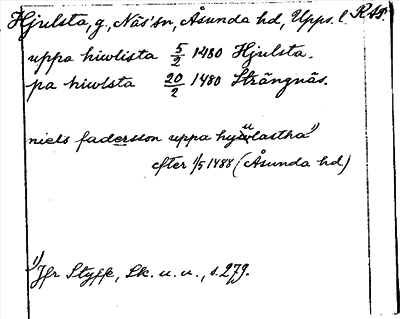 Hjulsta, g, Näs' sn, Åsunda hd, Upps. l. RAp.
uppa hiwlista 5/2 1480 Hjulsta.
pa hiwlsta 20/2 1480 Strängnäs.
niels fadersson uppa hywlastha 1)
efter 1/5 1488 (Åsunda hd)
1) Jfr Styffe, Sk. u. u., s. 279.